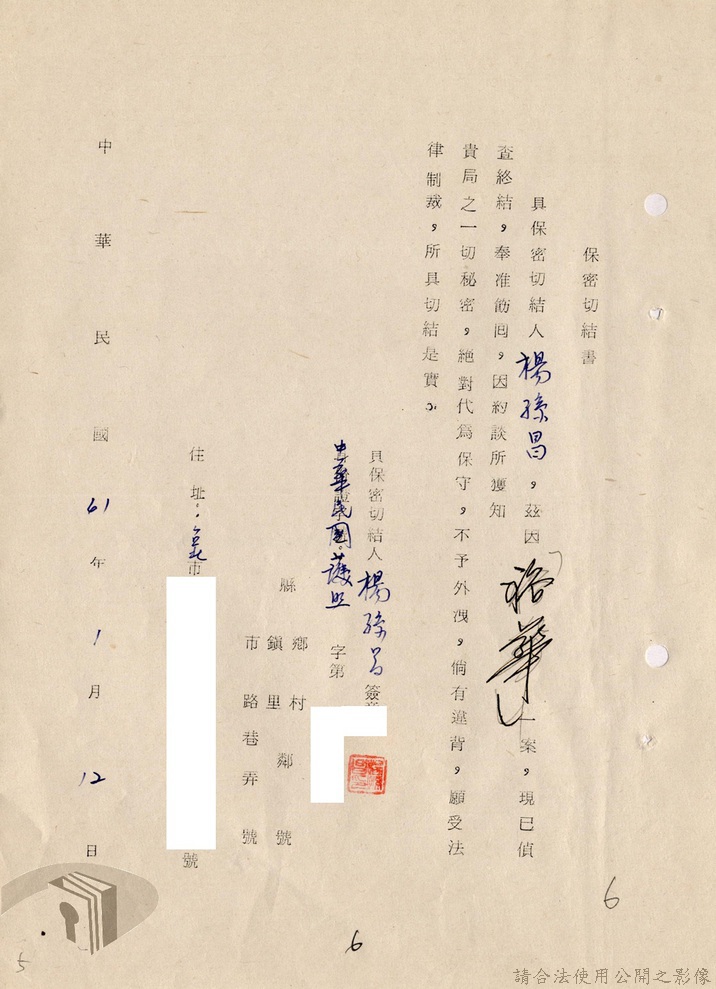 保密切結書
具保密切結人楊孫昌，茲因「裕華」一案，現已偵
查終結，奉准飭回，因約談所獲知
貴局之一切秘密，絕對代為保守，不予外洩，倘有違背，願受法
律制裁，所具切結是實。
具保密切結人楊孫昌簽章
中華民國護照字第
縣 鄉鎮 村里 鄰 號
市 路 巷 弄 號
住址：台北市 號
中華民國61年1月12日
6
6
5
請合法使用公開之影像